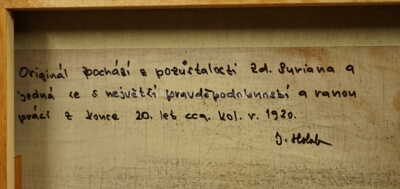 Originál pochází z pozůstalosti Zd. Buriana a
jedná se s největší pravděpodobností o ranou
práci z konce 20. let cca. kol. r. 1920.
J. Holub